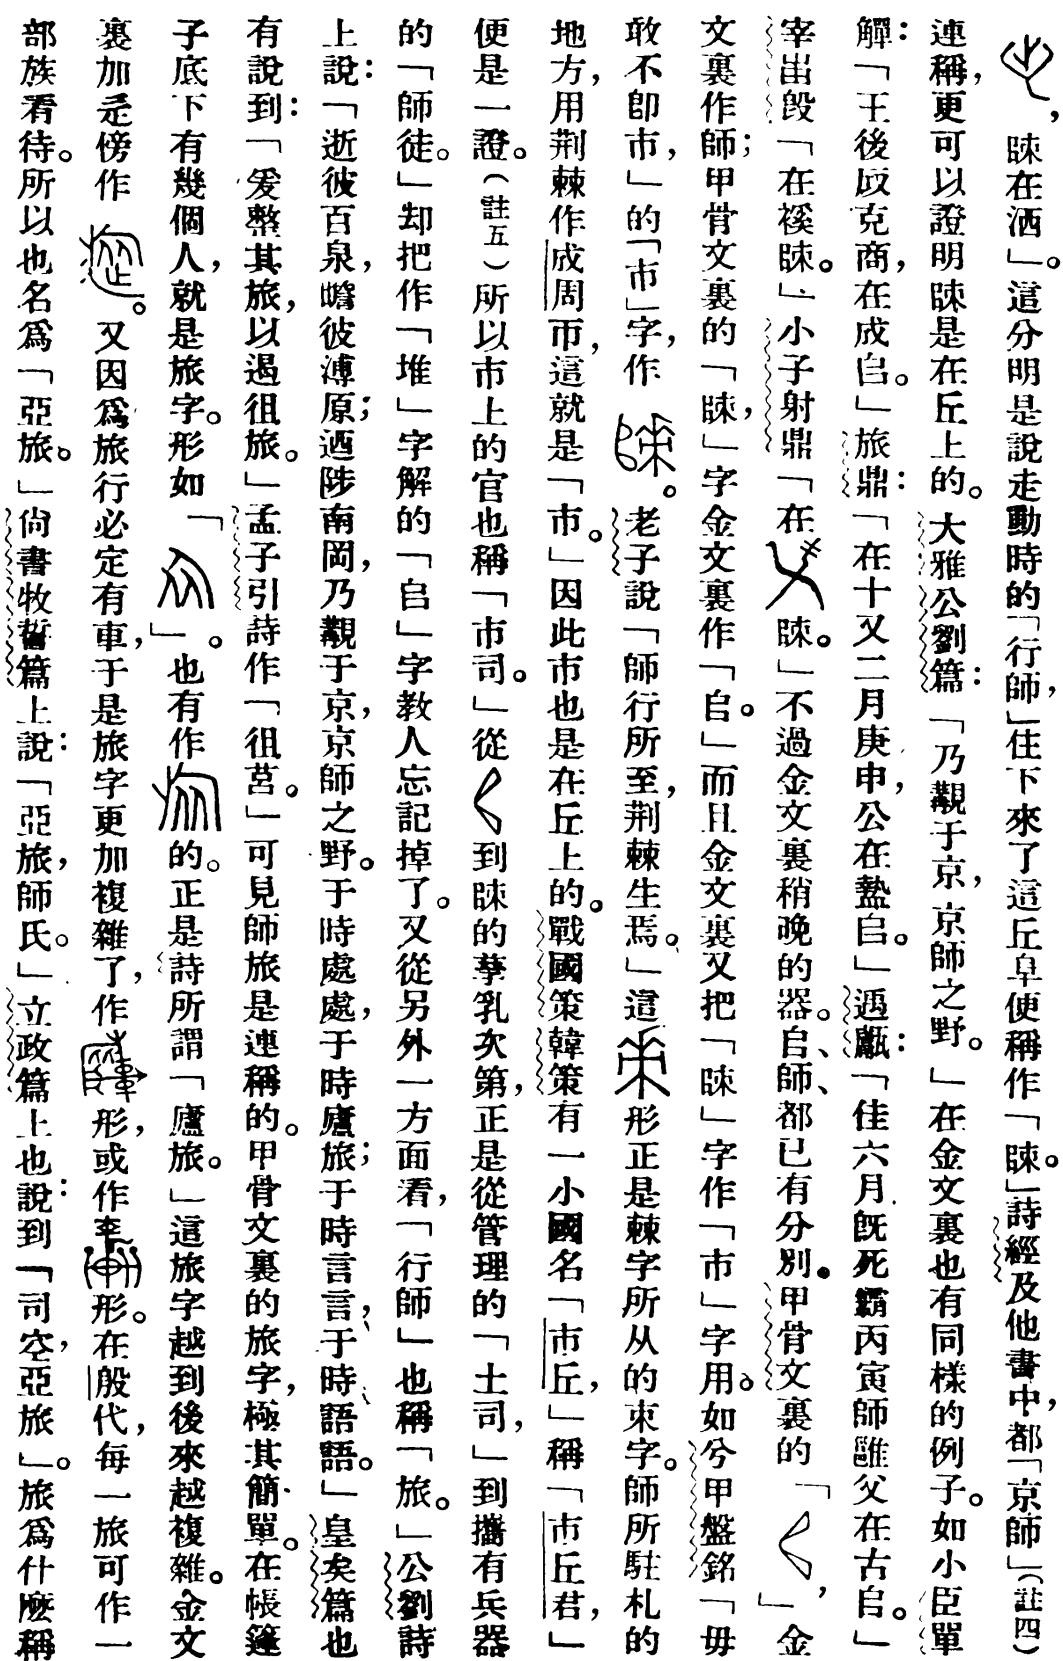 ，𠂤在洒」。這分明是說走動時的「行師」，住下來了這丘𠂤便稱作「𠂤。」詩經及他書中，都「京師」（註四）
連稱，更可以證明𠂤是在丘上的。大雅公劉篇：「乃覯于京，京師之野。」在金文裏也有同樣的例子。如小臣單
觶：「王後𠬝克商，在成𠂤。」旅鼎：「在十又二月庚申，公在盩𠂤。」遇甗：「隹六月旣死霸丙寅師雝父在古𠂤。」
宰㞢𣪘「在䙺𠂤。」小子射鼎「在𠂤。」不過金文裏稍晚的器。𠂤、師、都已有分別。甲骨文裏的「」，金
文裏作師；甲骨文裏的「，」字金文裏作「𠂤。」而且金文裏又把「」字作「市」字用。如兮甲盤銘「毋
敢不卽市，」的「市」字，作。老子說「師行所至，荆棘生焉。」這形正是棘字所从的朿字。師所駐札的
地方，用荆棘作成周帀，這就是「市。」因此市也是在丘上的。戰國策韓策有一小國名「市丘，」稱「市丘君，」
便是一證。（註五）所以市上的官也稱「市司。」從到的孳乳次第，正是從管理的「士司，」到攜有兵器
的「師徒。」却把作「堆」字解的「𠂤」字教人忘記掉了。又從另外一方面看，「行師」也稱「旅。」公劉詩
上說：「逝彼百泉，瞻彼溥原；迺陟南岡，乃覯于京，京師之野。于時處處，于時廬旅；于時言言，于時語語。」皇矣篇也
有說到：「爰整其旅，以遏徂旅。」孟子引詩作「徂莒。」可見師旅是連稱的。甲骨文裏的旅字，極其簡單。在帳篷
子底下有幾個人，就是旅字。形如「」。也有作的。正是詩所謂「廬旅。」這旅字越到後來越複雜。金文
裏加辵傍作。又因爲旅行必定有車，于是旅字更加複雜了，作形，或作形。在殷代，每一旅可作一
部族看待。所以也名爲「亞旅。」尙書牧誓篇上說：「亞旅，師氏。」立政篇上也說：到「司空，亞旅」。旅爲什麽稱